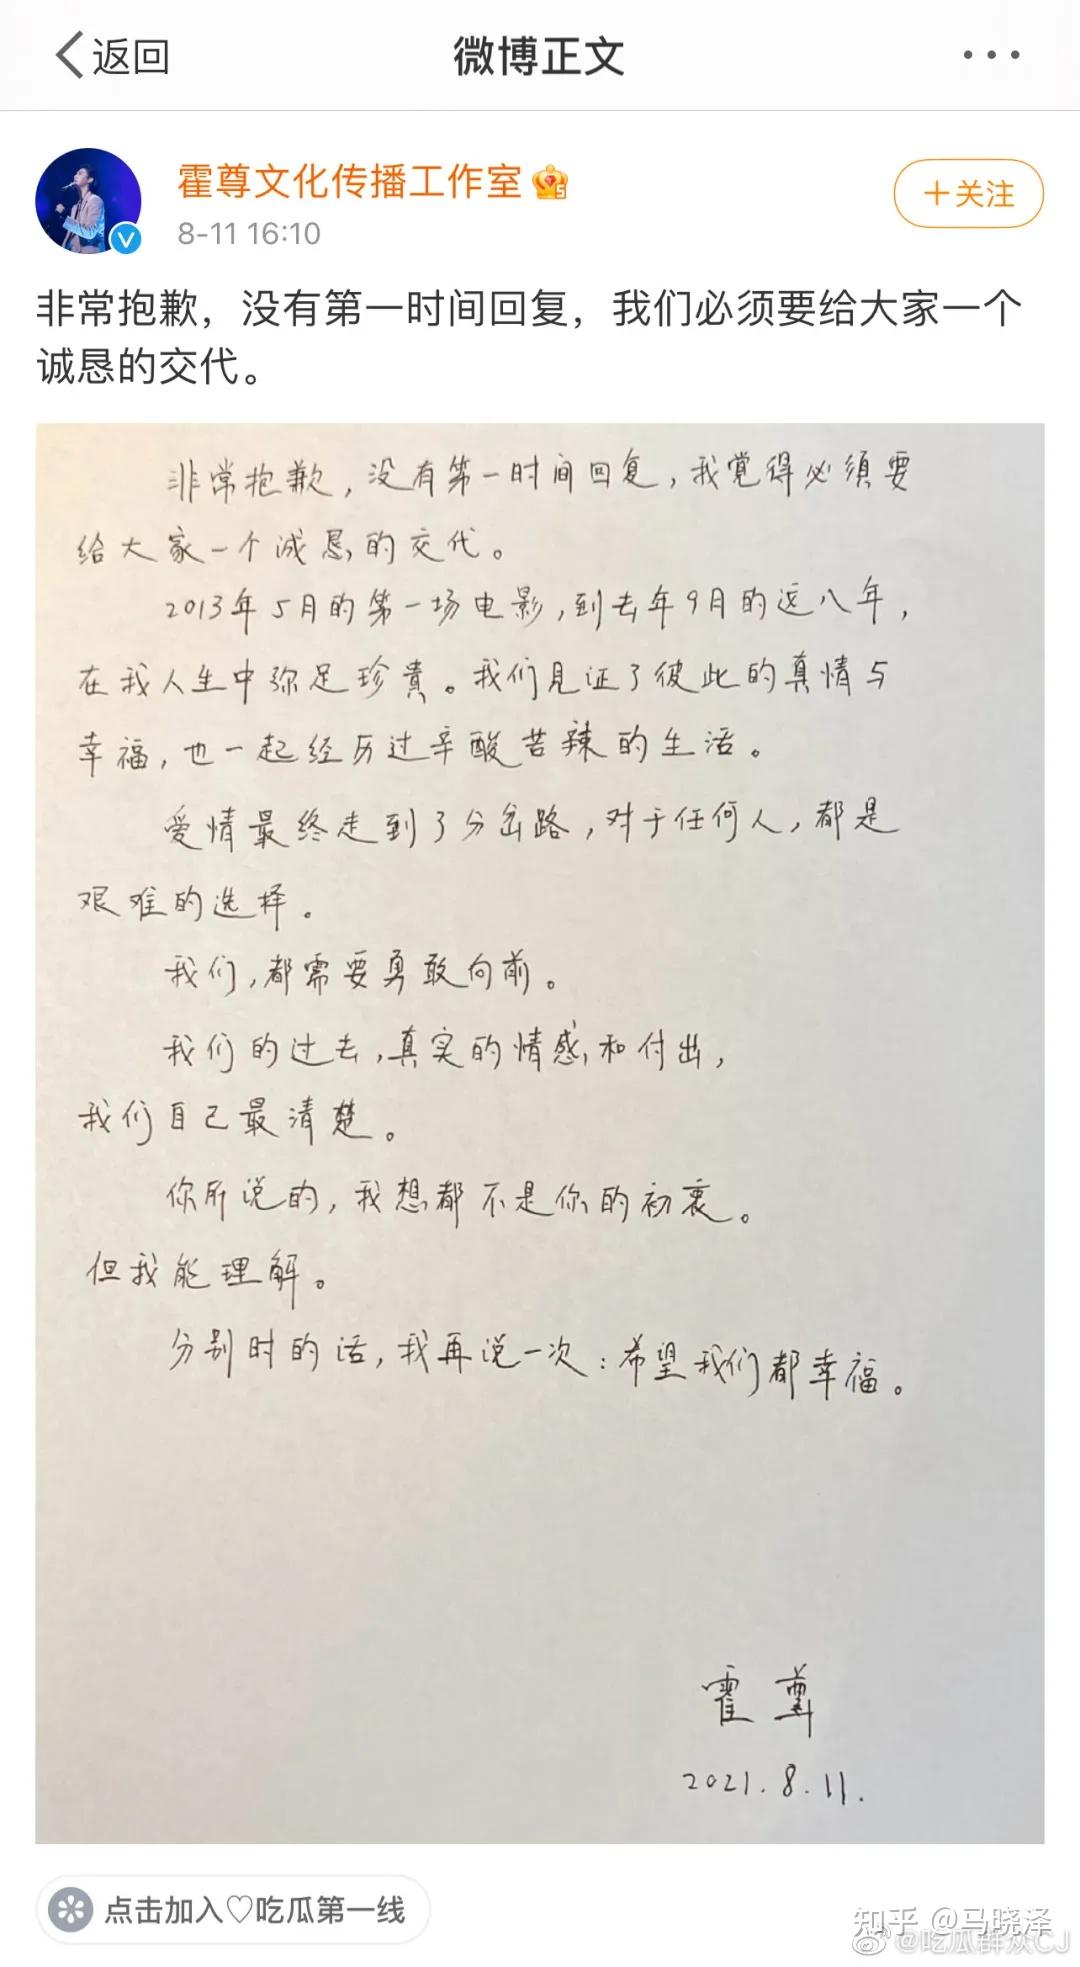 返回
微博正文
霍尊文化传播工作室
8-11 16:10
+关注
非常抱歉，没有第一时间回复，我们必须要给大家一个
诚恳的交代。
非常抱歉，没有第一时间回复，我觉得必须要
给大家一个诚恳的交代。
2013年5月的第一场电影，到去年9月的这八年，
在我人生中弥足珍贵。我们见证了彼此的真情与
幸福，也一起经历过辛酸苦辣的生活。
爱情最终走到了分岔路，对于任何人，都是
艰难的选择。
我们，都需要勇敢向前。
我们的过去，真实的情感和付出，
我们自己最清楚。
你所说的，我想都不是你的初衷。
但我能理解。
分别时的话，我再说一次：希望我们都幸福。
霍尊
2021.8.11.
点击加入♡吃瓜第一线
知乎 @马晓泽
@吃瓜群众CJ